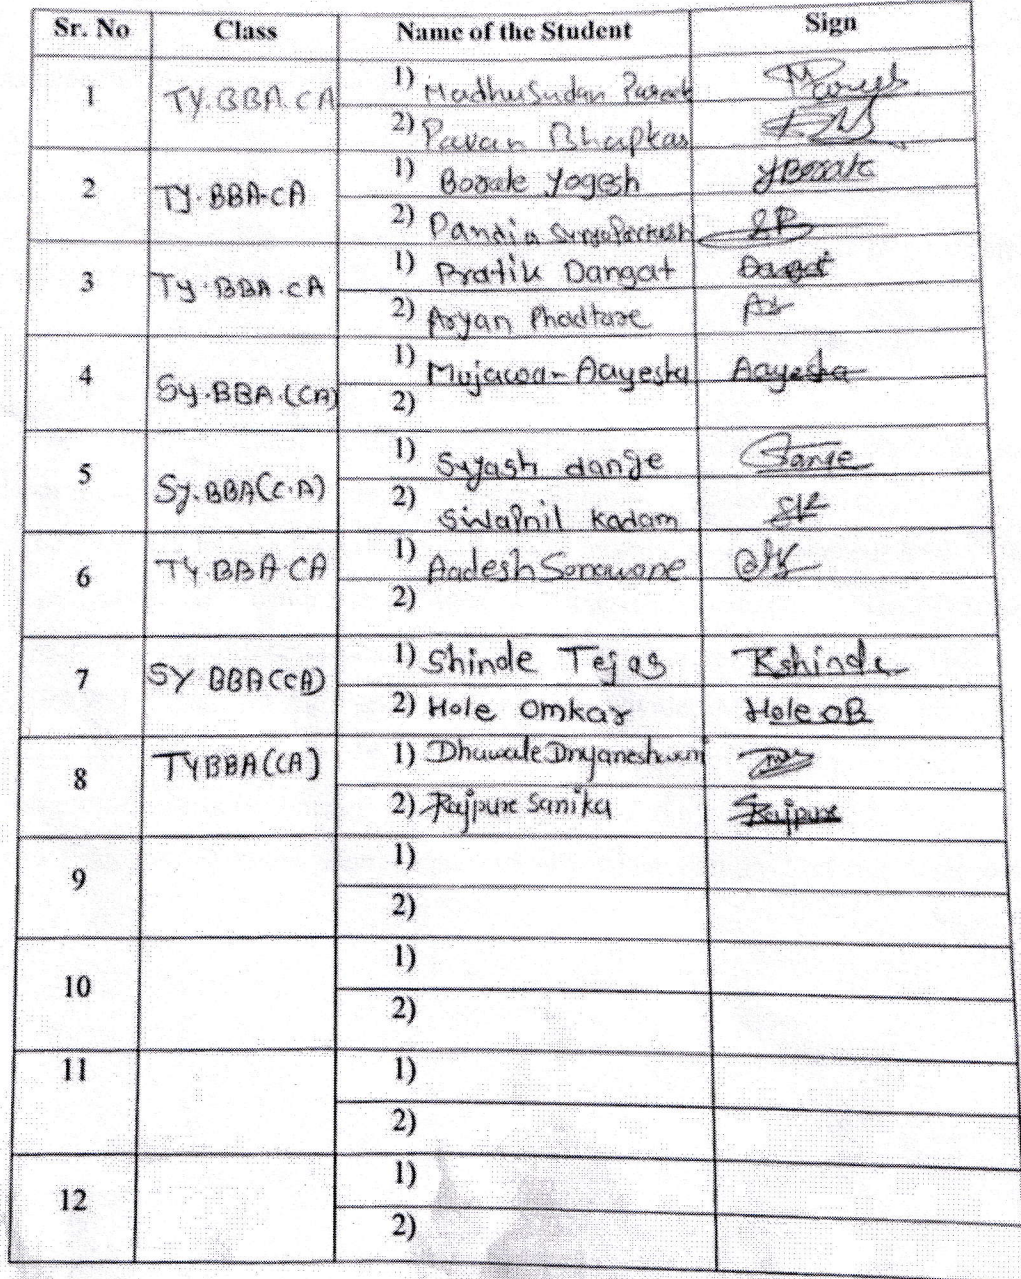 Sr. No Class Name of the Student Sign
1 TY.BBA.CA 1) Madhusudan
2) Pavan Bhapkar
2 TY.BBA-CA 1) Borate Yogesh YBorate
2) Pandia SP
3 TY.BBA.CA 1) Pratik Dangat Dangat
2) Aryan Phadtare
4 SY.BBA.(CA) 1) Mujawar Aayesha Aayesha
2)
5 SY.BBA(C.A) 1) Suyash dange
2) Swapnil Kadam SK
6 TY.BBA.CA 1) Aadesh Sonawane
2)
7 SY BBA(CA) 1) Shinde Tejas Tshinde
2) Hole Omkar Hole OB
8 TYBBA(CA) 1) Dhuwale Dnyaneshwari
2) Rajpure Sanika SRajpure
9 1)
2)
10 1)
2)
11 1)
2)
12 1)
2)